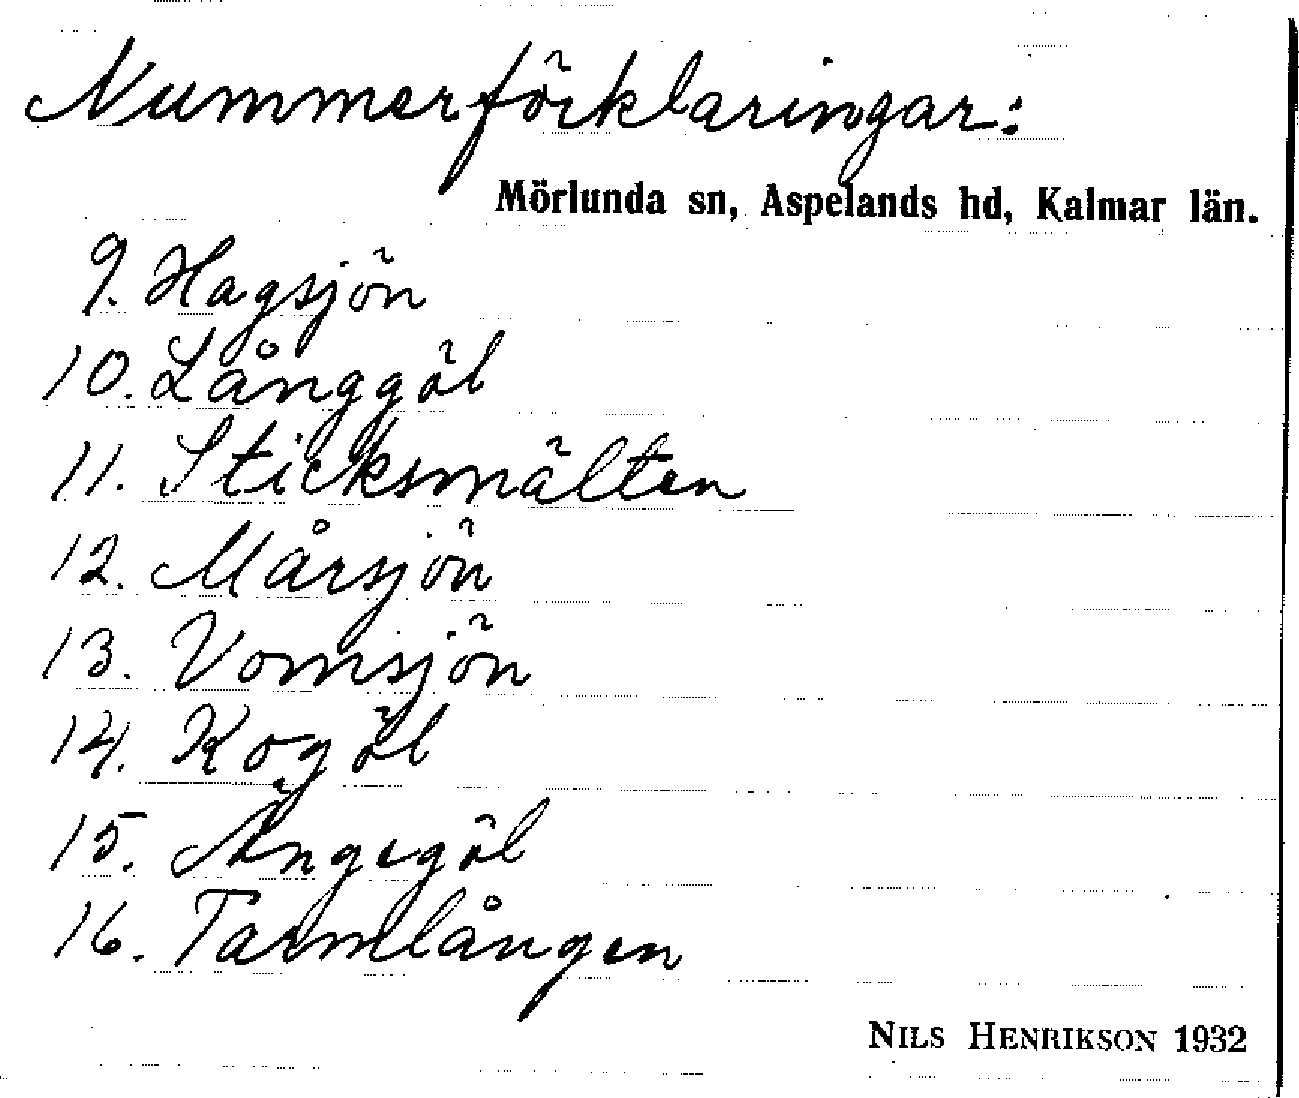 Nummerförklaringar:
Mörlunda sn, Aspelands hd, Kalmar län.
9. Hagsjön
10. Långgöl
11. Sticksmälten
12. Mårsjön
13. Vomsjön
14. Kogöl
15. Ängegöl
16. Tarmlången
NILS HENRIKSON 1932